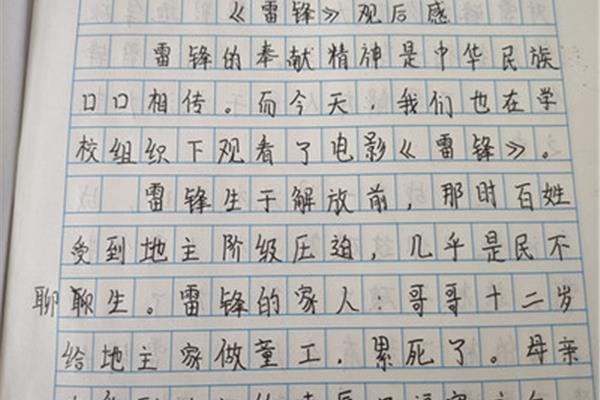 《雷锋》观后感
雷锋的奉献精神是中华民族
口口相传。而今天，我们也在学
校组织下观看了电影《雷锋》。
雷锋生于解放前，那时百姓
受到地主阶级压迫，几乎是民不
聊聊生。雷锋的家人：哥哥十二岁
给地主家做童工，累死了。母亲